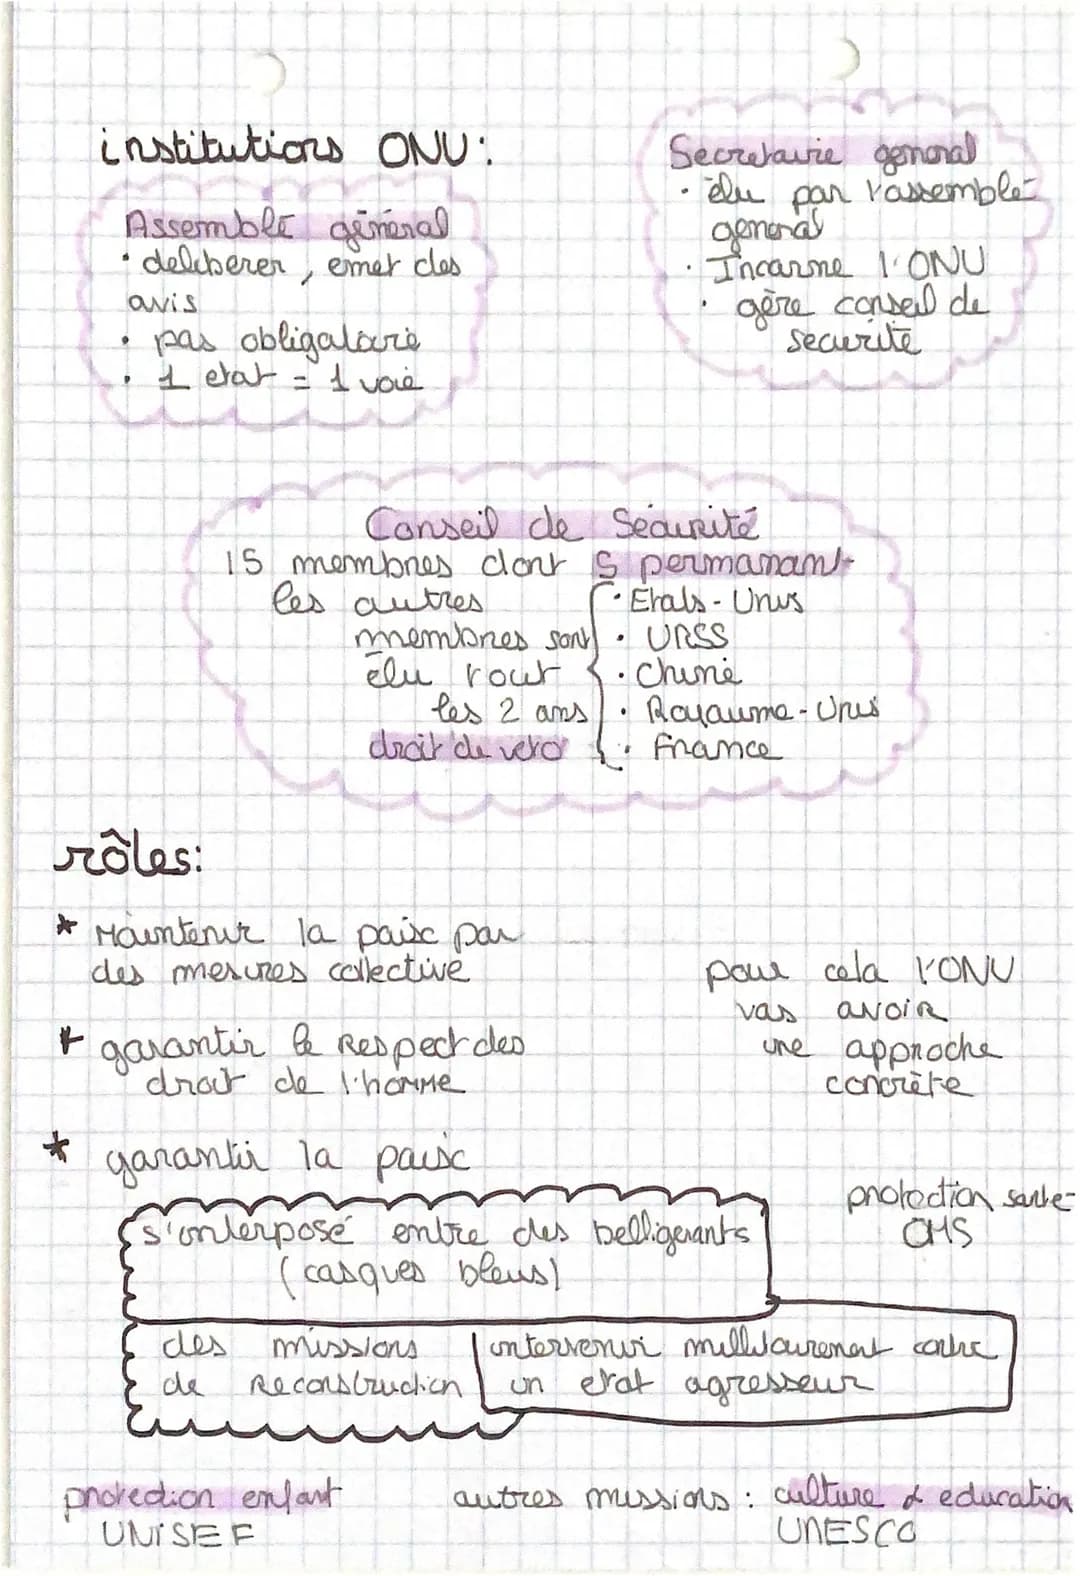 institutions ONU:
Assemblé général
• deliberer, emet des
avis
• pas obligatoire
• 1 etat = 1 voie
Secretaire general
• élu par l'assemblé
general
• Incarne l'ONU
• gère conseil de
securité
Conseil de Sécurité
15 membres dont 5 permanant
les autres
membres sont
élu tout
les 2 ans
droit de veto
• Etats-Unis
• URSS
• Chine
• Royaume-Unis
• France
rôles:
* Maintenir la paix par
des mesures collective
* garantir le respect des
droit de l'homme
* garantir la paix
pour cela l'ONU
vas avoir
une approche
concrète
s'interposé entre des belligerants
(casques bleus)
des missions
de reconstruction
intervenir millitairement contre
un etat agresseur
protection santé
OMS
protection enfant
UNISEF
autres missions : culture & education
UNESCO